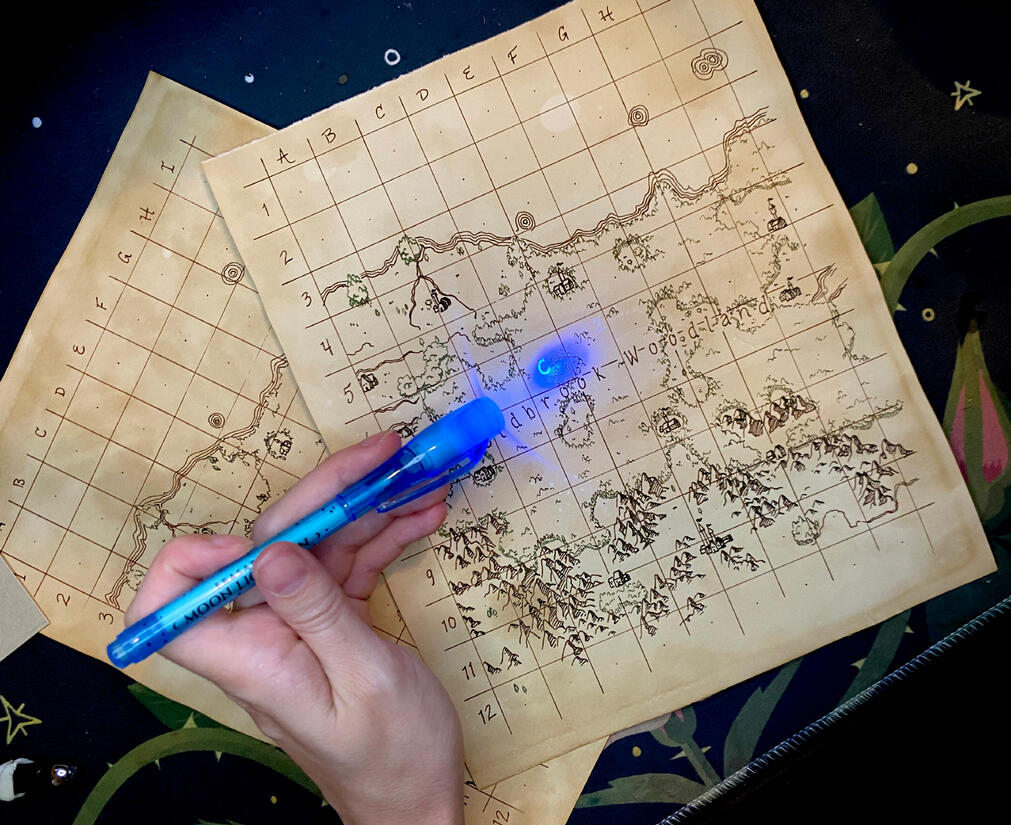 A B C D E F G H
1
2
3
4
5
9
10
11
12
dbrook Woodland
C
I
H
G
F
E
D
C
B
2
3
12
MOON LI